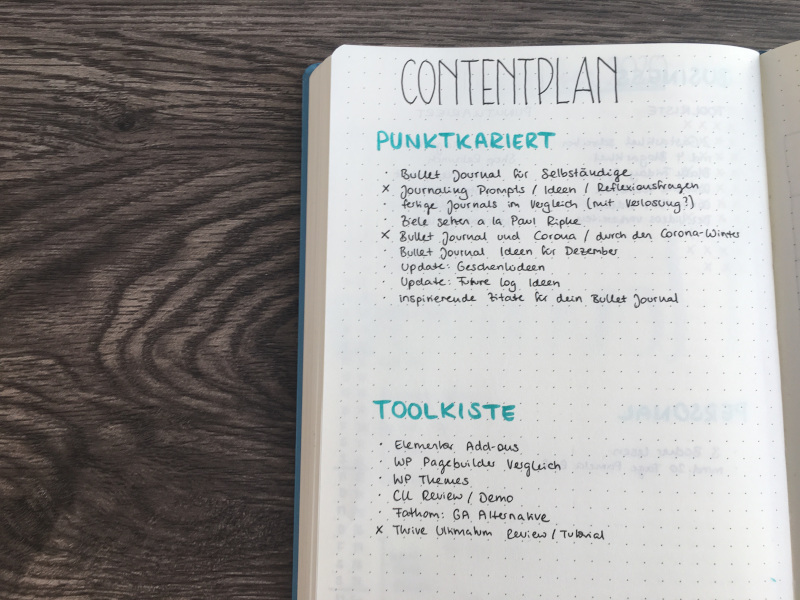 CONTENTPLAN
PUNKTKARIERT
· Bullet Journal für Selbständige
x Journaling Prompts / Ideen / Reflexionsfragen
· fertige Journals im Vergleich (mit Verlosung?)
· Ziele setzen a la Paul Ripke
x Bullet Journal und Corona / durch den Corona-Winter
· Bullet Journal Ideen für Dezember
· Update: Geschenkideen
· Update: Future Log Ideen
· inspirierende Zitate für dein Bullet Journal
TOOLKISTE
· Elementor Add-ons
· WP Pagebuilder Vergleich
· WP Themes
· CU Review / Demo
· Fathom: GA Alternative
x Thrive Ultimatum Review / Tutorial